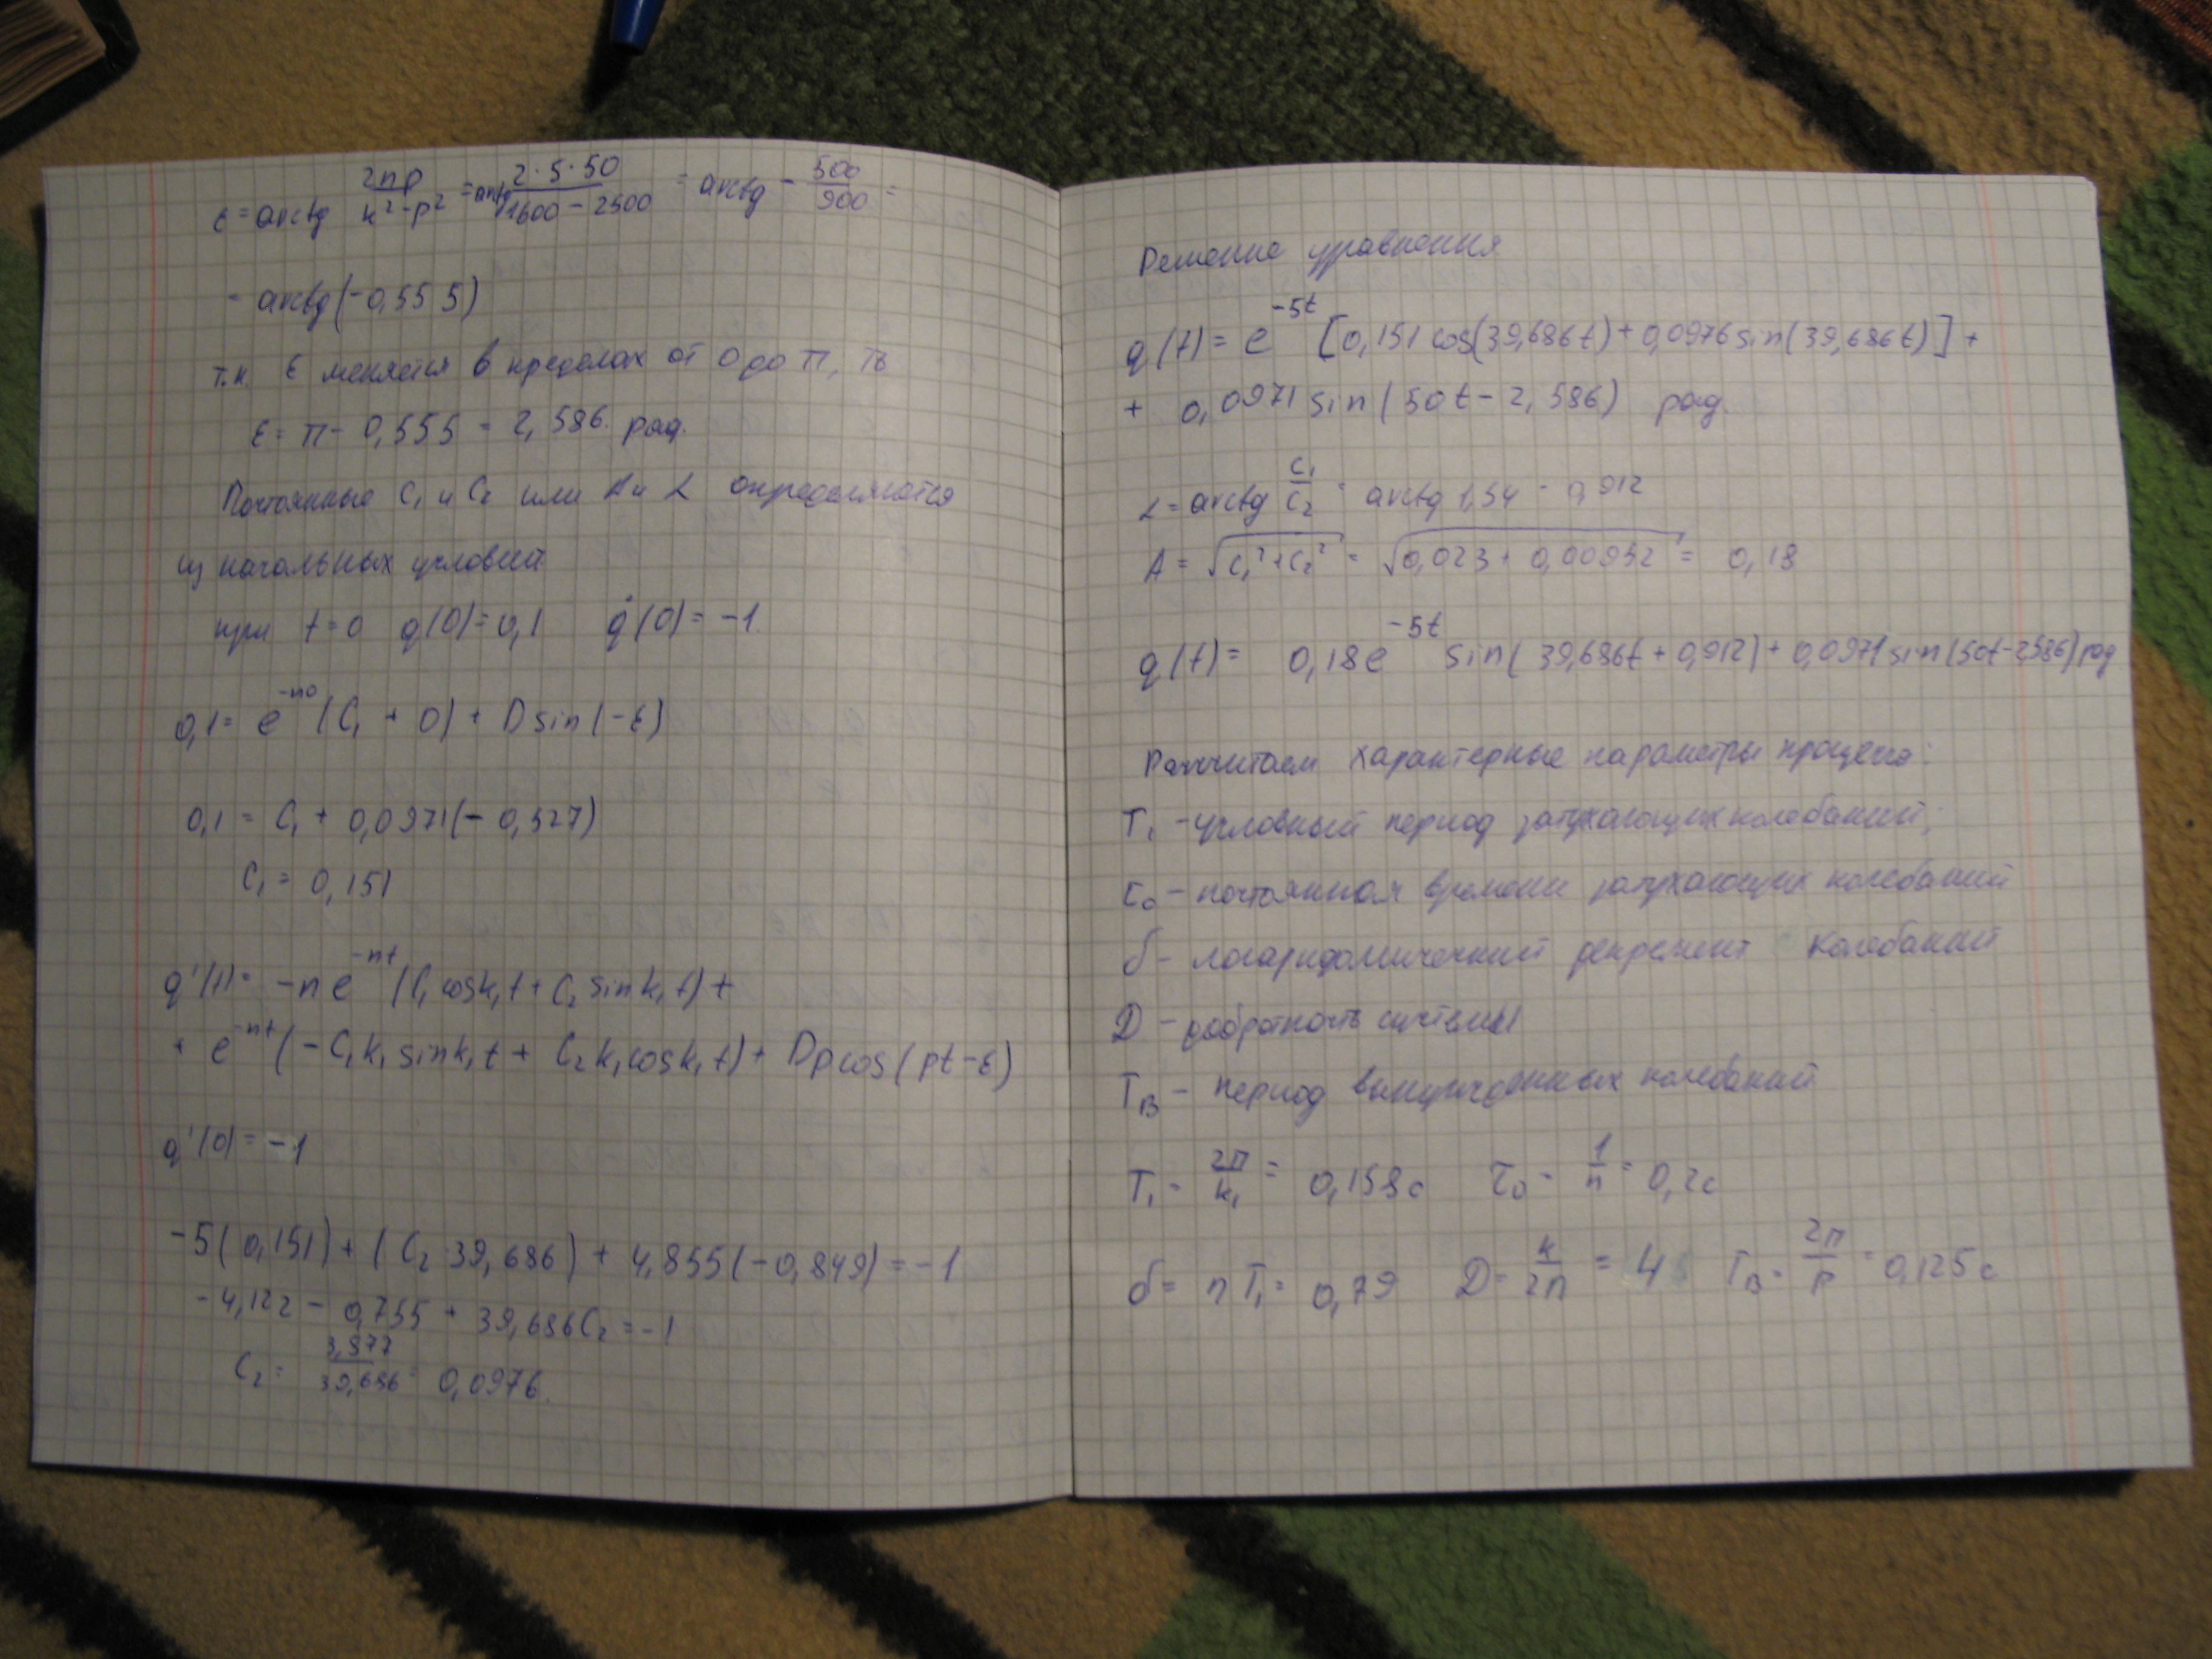 ε = arctg 2np / k² - p² = arctg 2·5·50 / 1600 - 2500 = arctg - 500 / 900 =
= arctg (-0,555)
т.к. ε меняется в пределах от 0 до π, то
ε = π - 0,555 = 2,586 рад.
Постоянные C₁ и C₂ или A и α определяются
из начальных условий
при t = 0 q(0) = 0,1 q̇(0) = -1.
0,1 = e^(-n0) (C₁ + 0) + D sin(-ε)
0,1 = C₁ + 0,0971(-0,527)
C₁ = 0,151
q'(t) = -n e^(-nt) (C₁ cos k₁t + C₂ sin k₁t) +
+ e^(-nt) (-C₁k₁ sin k₁t + C₂k₁ cos k₁t) + Dp cos(pt - ε)
q'(0) = -1
-5(0,151) + (C₂ 39,686) + 4,855(-0,849) = -1
-4,122 - 0,755 + 39,686C₂ = -1
C₂ = 3,877 / 39,686 = 0,0976.
Решение уравнения
q(t) = e^(-5t) [0,151 cos(39,686t) + 0,0976 sin(39,686t)] +
+ 0,0971 sin(50t - 2,586) рад.
α = arctg C₁ / C₂ = arctg 1,54 = 0,912
A = √(C₁² + C₂²) = √(0,023 + 0,00952) = 0,18
q(t) = 0,18e^(-5t) sin(39,686t + 0,912) + 0,0971 sin(50t - 2,586) рад
Рассчитаем характерные параметры процесса:
T₁ - условный период затухающих колебаний;
τ₀ - постоянная времени затухающих колебаний
δ - логарифмический декремент колебаний
Д - добротность системы
Tв - период вынужденных колебаний
T₁ = 2π / k₁ = 0,158 с τ₀ = 1 / n = 0,2 с
δ = nT₁ = 0,79 Д = k / 2n = 4 Tв = 2π / p = 0,125 с